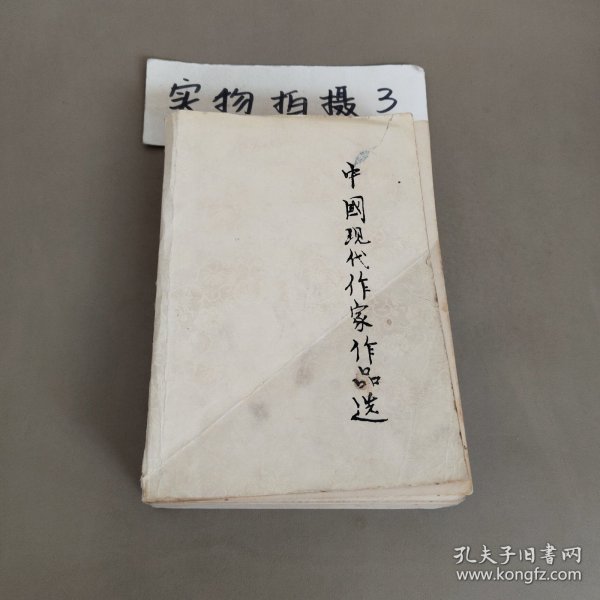 实物拍摄3
中國现代作家作品选
孔夫子旧书网
www.kongfz.com